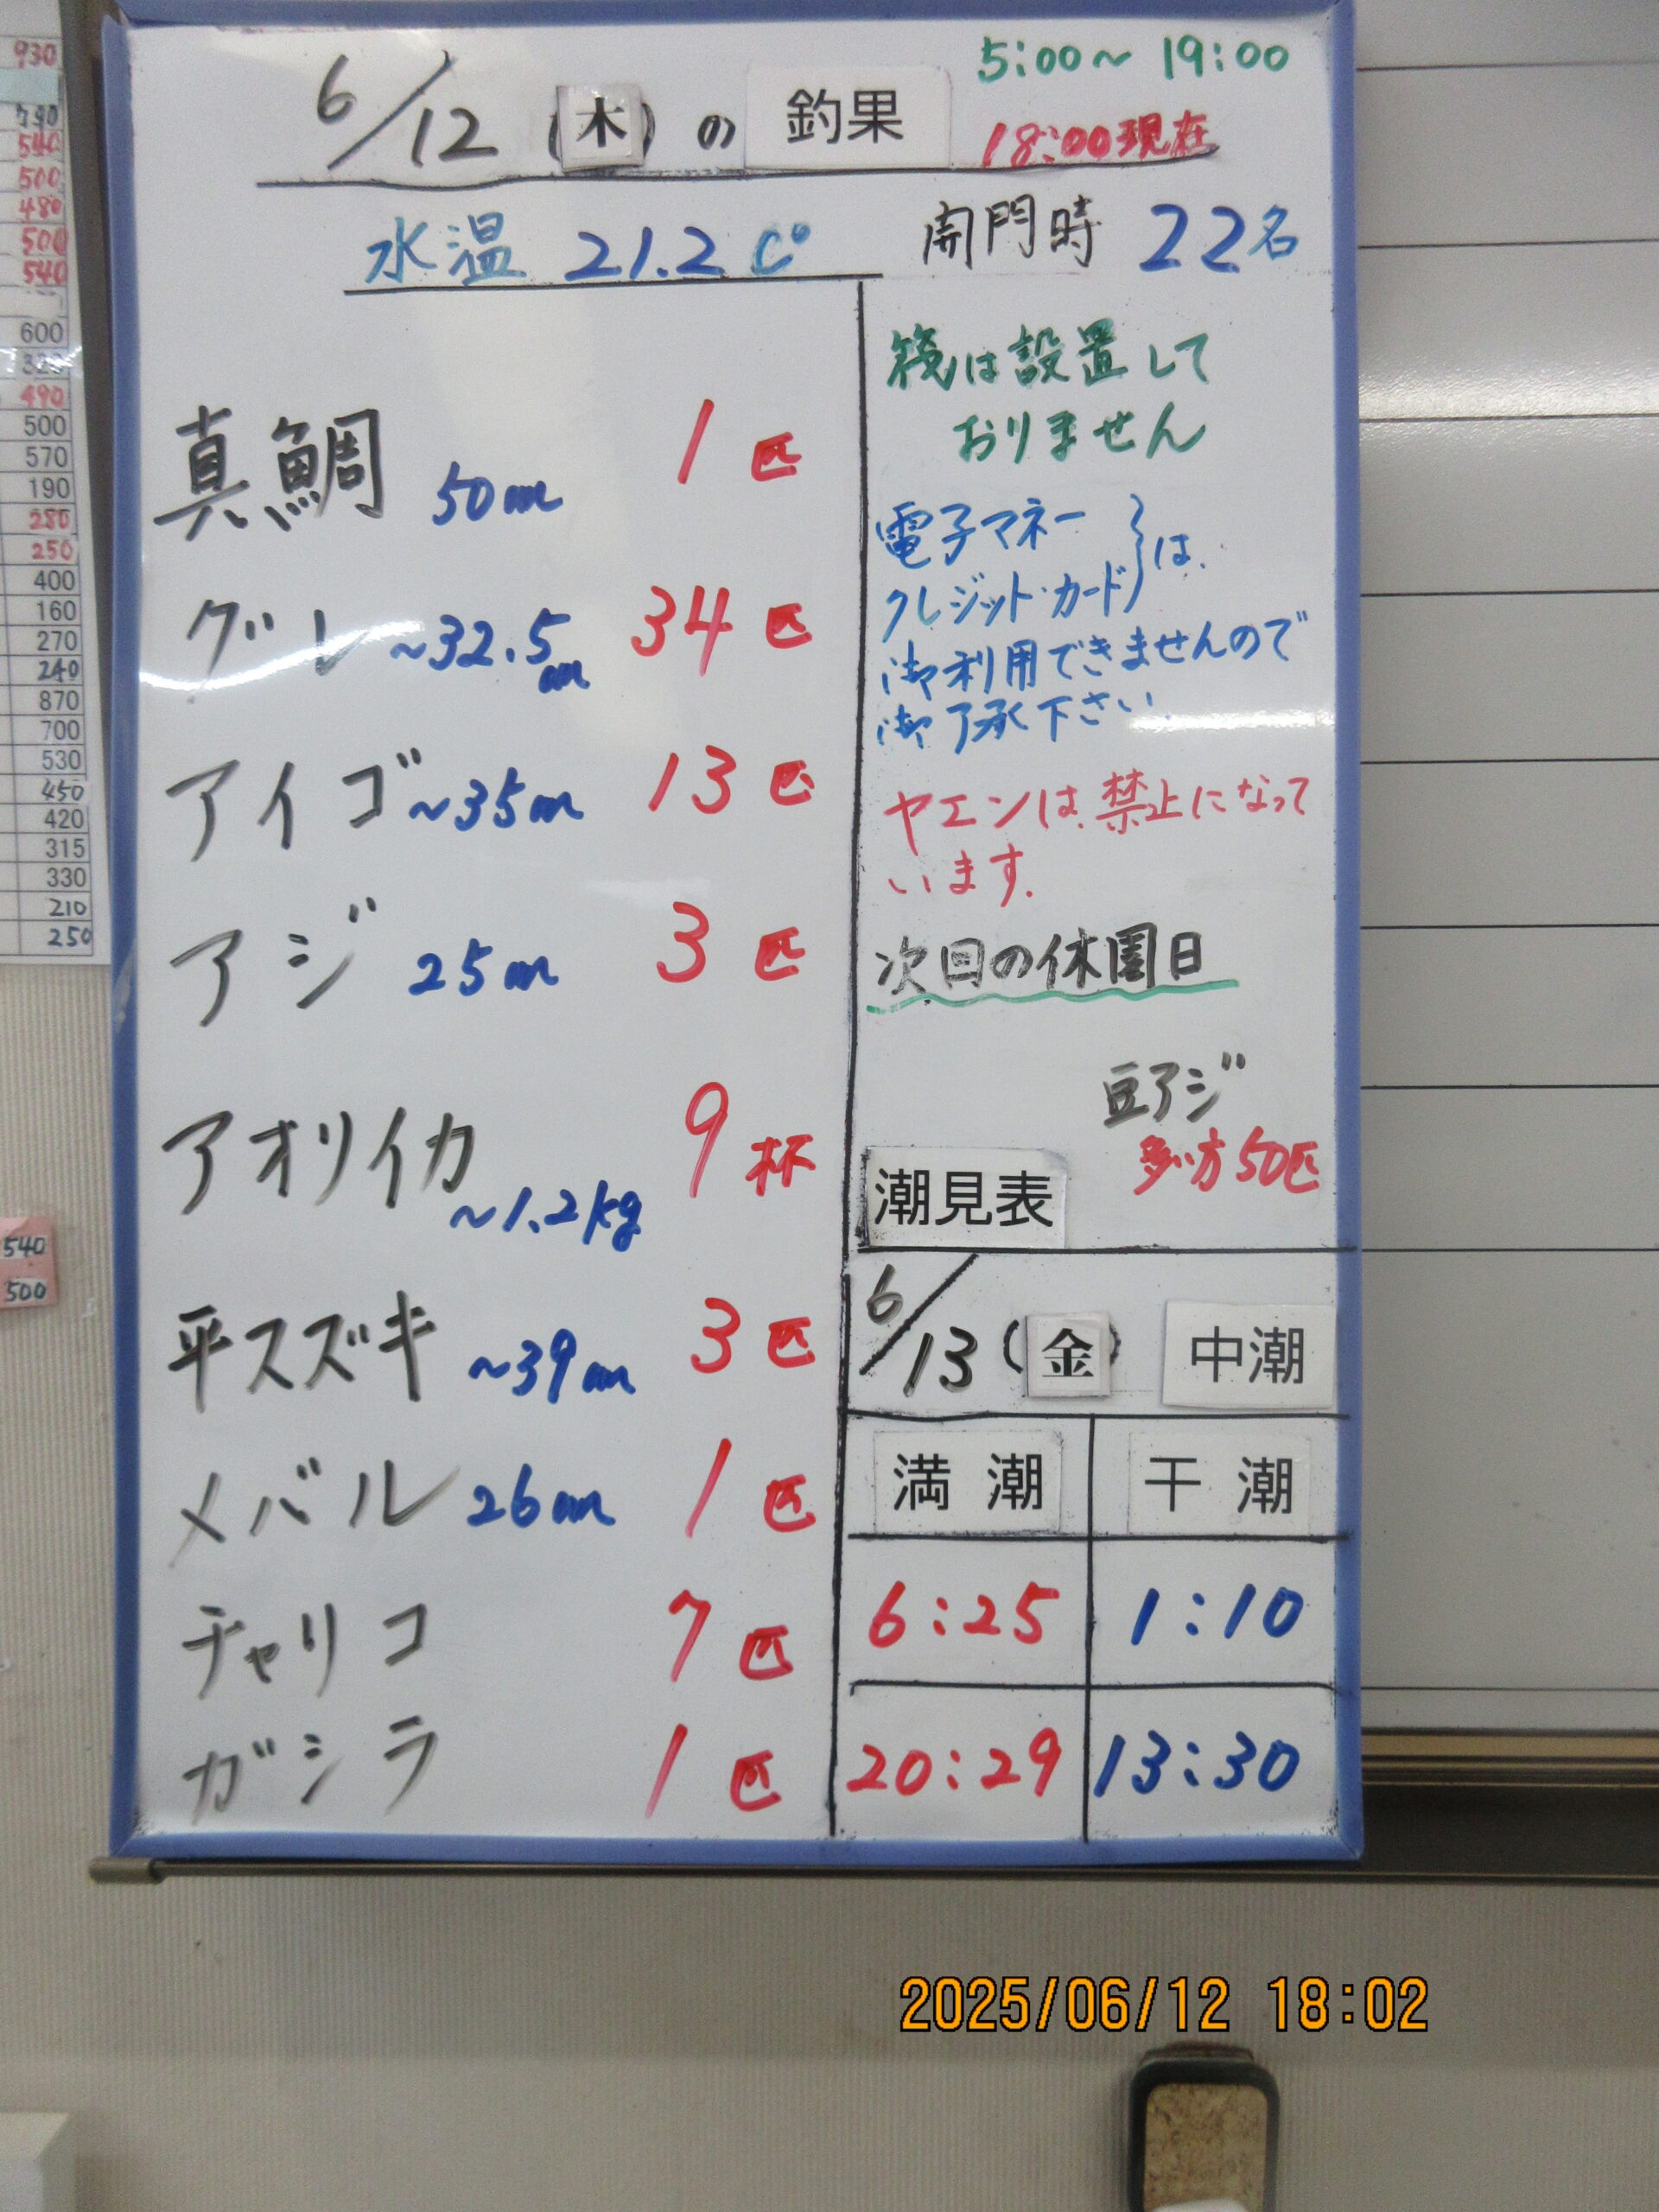 6/12 (木) の 釣果
5:00～19:00
18:00現在
水温 21.2 C°
開門時 22名
真鯛 50cm 1匹
グレ ~32.5cm 34匹
アイゴ ~35cm 13匹
アジ 25cm 3匹
アオリイカ ~1.2kg 9杯
平スズキ ~39cm 3匹
メバル 26cm 1匹
チャリコ 7匹
ガシラ 1匹
筏は設置して
おりません
電子マネー
クレジット・カード}は、
御利用できませんので
御了承下さい。
ヤエンは、禁止になって
います。
次回の休園日
豆アジ
多い方50匹
潮見表
6/13 (金) 中潮
満潮 干潮
6:25 1:10
20:29 13:30
930
790
540
500
480
500
540
600
320
490
500
570
190
280
250
400
160
270
240
870
700
530
450
420
315
330
210
250
540
500
2025/06/12 18:02